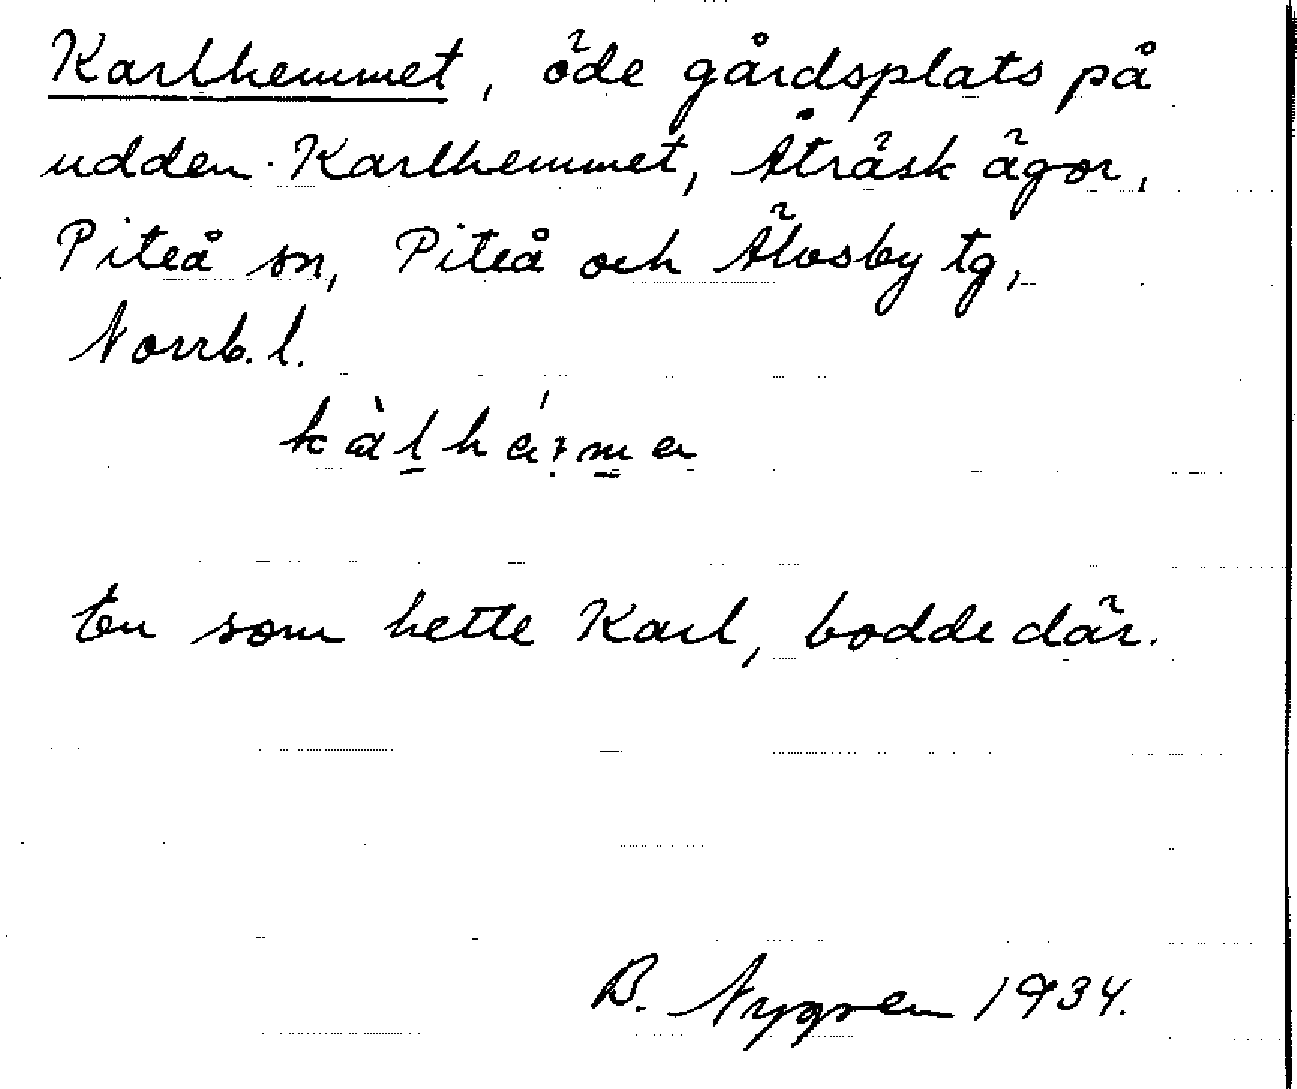 Karlhemmet, öde gårdsplats på
udden Karlhemmet, Åträsk ägor,
Piteå sn, Piteå och Älvsby tg,
Norrb. l.
En som hette Karl, bodde där.
B. Nygren 1934.